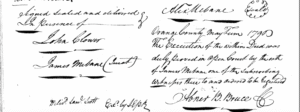 Signed sealed and delivered
In presence of
John Clower
James Mebane (Jurat)
Alex Mebane
Orange County May Term 1798
The Execution of the within Deed was
duly proved in Open Court by the oath
of James Mebane, one of the Subscribing
and ordered to be registered
Abner B. Bruce CC